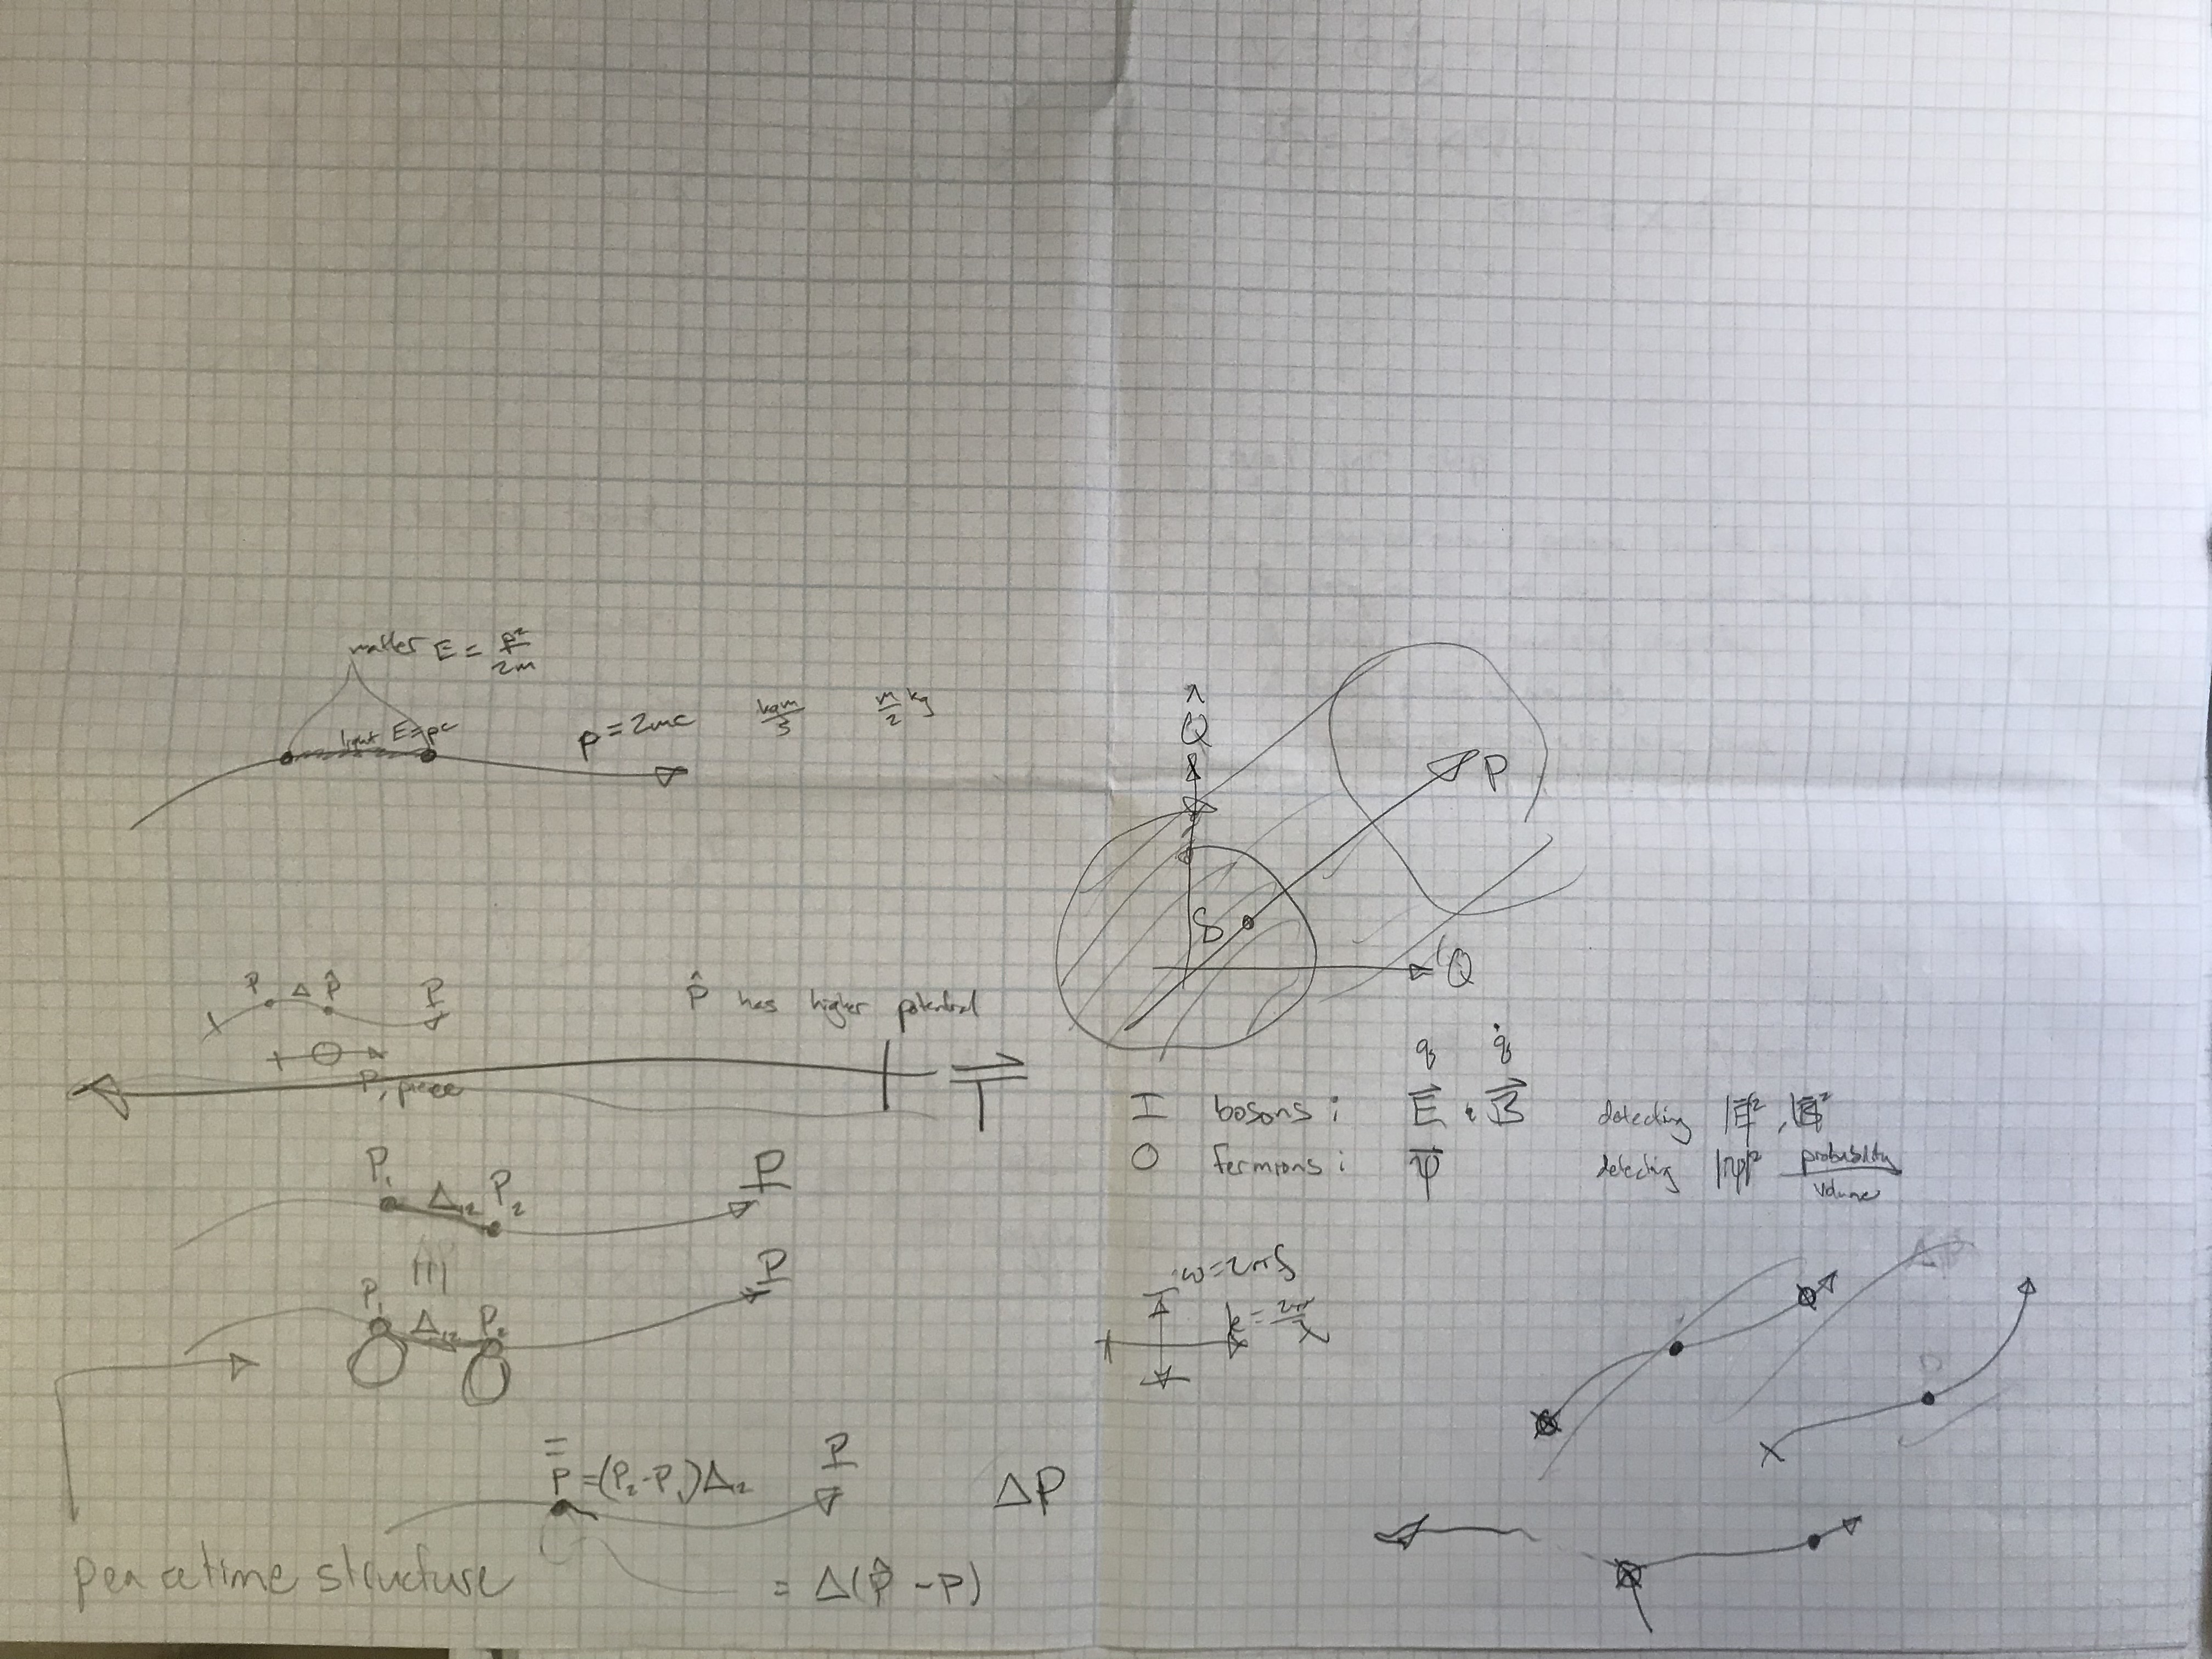 matter E = p²/2m
light E=pc
p = 2mc
kgm/s
m/2 kg
P Δ P̂ P
P̂ has higher potential
P, piece
T
P₁ Δ₁₂ P₂ P
P₁ Δ₁₂ P₂ P
P = (P₂-P₁)Δ₁₂ P
ΔP
peacetime structure
= Δ(P̂ - P)
Q
P
S
Q
q q̇
I bosons : E⃗ , B⃗ detecting |E|², |B|²
O fermions : ψ detecting |ψ|² probability/volume
ω = 2πf
k = 2π/λ
Δp